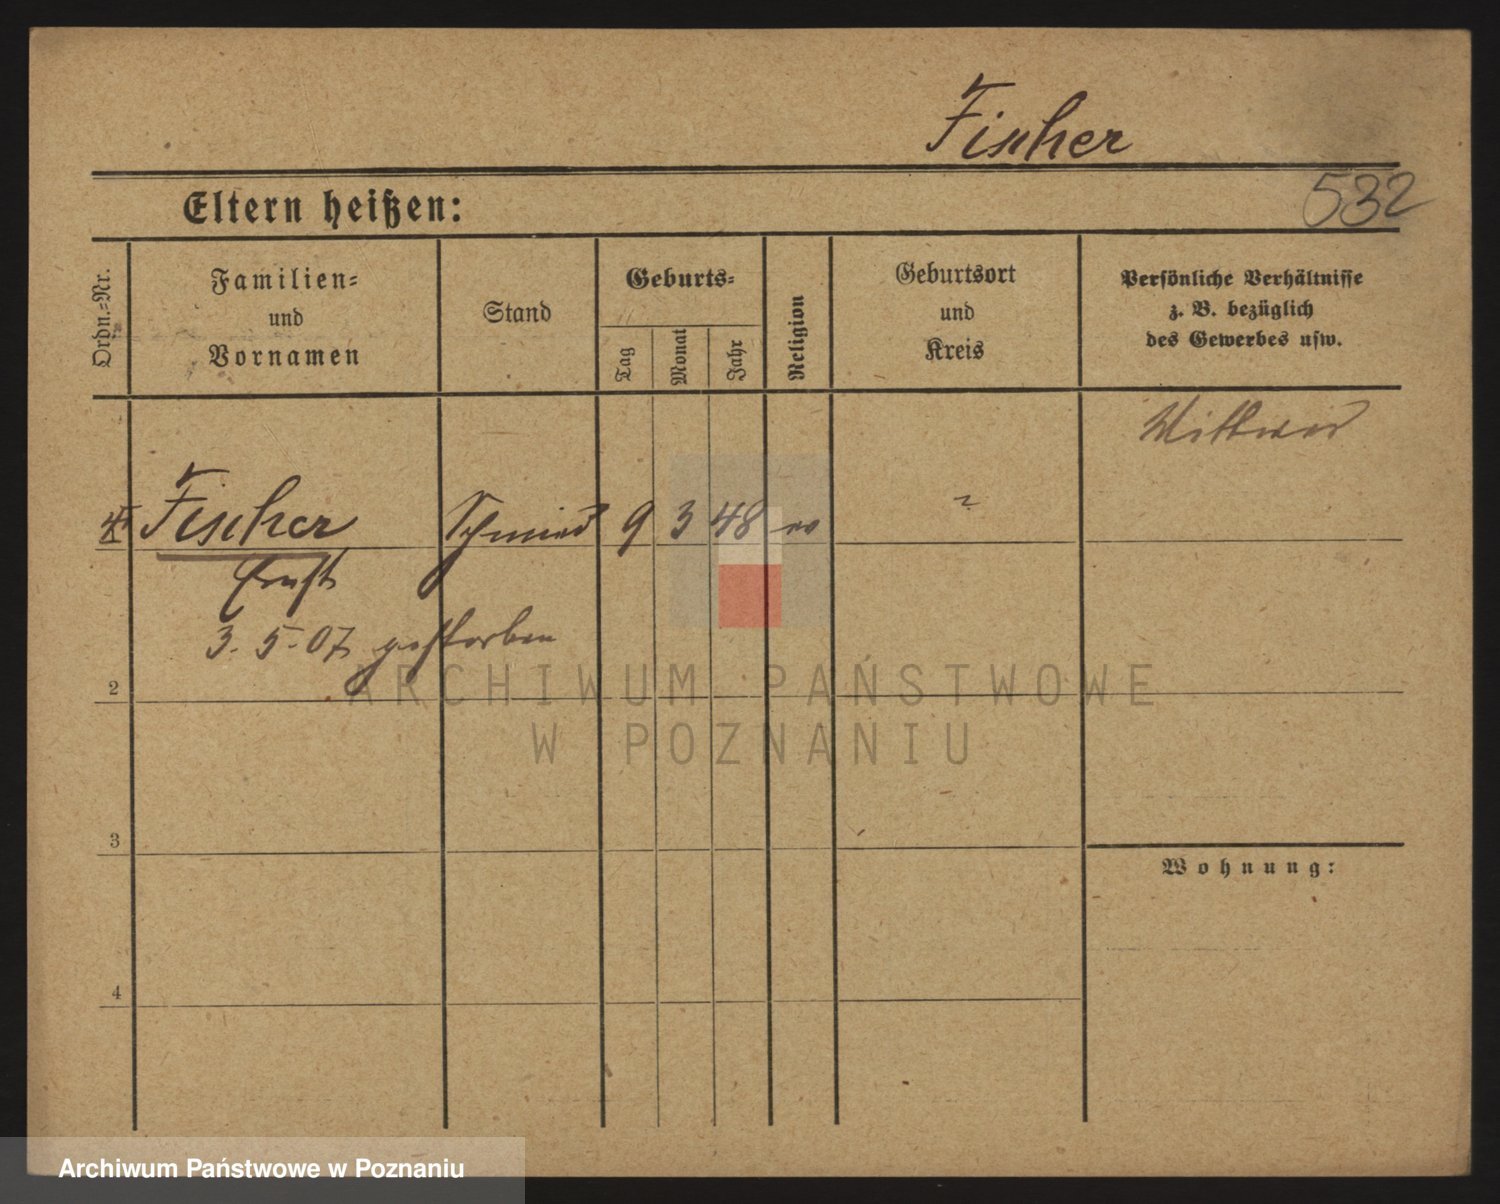 Fischer
Eltern heißen:
532
Ordn.-Nr.
Familien-
und
Vornamen
Stand
Geburts-
Tag
Monat
Jahr
Religion
Geburtsort
und
Kreis
Persönliche Verhältnisse
z. B. bezüglich
des Gewerbes usw.
Wittwer
Fischer Schmied 9 3 48 ev ?
Ernst
3. 5. 07 gestorben
ARCHIWUM PAŃSTWOWE
W POZNANIU
2
3
Wohnung:
4
Archiwum Państwowe w Poznaniu